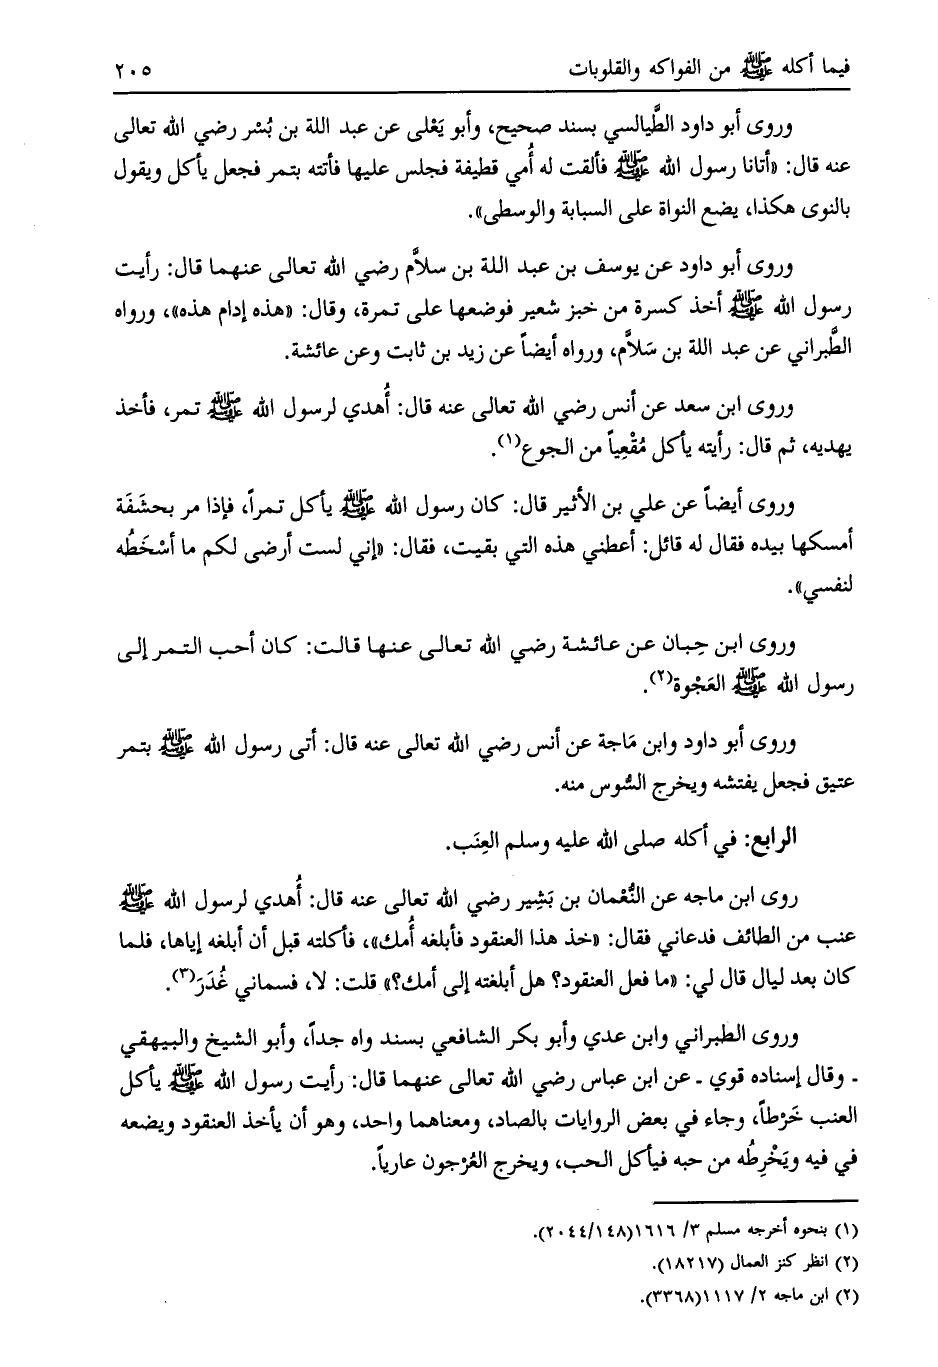 فيما أكله ﷺ من الفواكه والقلوبات ٢٠٥
وروى أبو داود الطَّيالسي بسند صحيح، وأبو يَعْلى عن عبد اللة بن بُسْر رضي الله تعالى
عنه قال: «أتانا رسول الله ﷺ فألقت له أُمي قطيفة فجلس عليها فأتته بتمر فجعل يأكل ويقول
بالنوى هكذا، يضع النواة على السبابة والوسطى».
وروى أبو داود عن يوسف بن عبد اللة بن سلاَّم رضي الله تعالى عنهما قال: رأيت
رسول الله ﷺ أخذ كسرة من خبز شعير فوضعها على تمرة، وقال: «هذه إدام هذه»، ورواه
الطَّبراني عن عبد اللة بن سَلاَّم، ورواه أيضاً عن زيد بن ثابت وعن عائشة.
وروى ابن سعد عن أنس رضي الله تعالى عنه قال: أُهدي لرسول الله ﷺ تمر، فأخذ
يهديه، ثم قال: رأيته يأكل مُقْعِياً من الجوع(١).
وروى أيضاً عن علي بن الأثير قال: كان رسول الله ﷺ يأكل تمراً، فإذا مر بحشَفَة
أمسكها بيده فقال له قائل: أعطني هذه التي بقيت، فقال: «إني لست أرضى لكم ما أسْخَطُه
لنفسي».
وروى ابن حِبان عن عائشة رضي الله تعالى عنها قالت: كان أحب التمر إلى
رسول الله ﷺ العَجْوة(٢).
وروى أبو داود وابن مَاجة عن أنس رضي الله تعالى عنه قال: أتى رسول الله ﷺ بتمر
عتيق فجعل يفتشه ويخرج السُّوس منه.
الرابع: في أكله صلى الله عليه وسلم العِنَب.
روى ابن ماجه عن النُّعْمان بن بَشِير رضي الله تعالى عنه قال: أُهدي لرسول الله ﷺ
عنب من الطائف فدعاني فقال: «خذ هذا العنقود فأبلغه أُمك»، فأكلته قبل أن أبلغه إياها، فلما
كان بعد ليال قال لي: «ما فعل العنقود؟ هل أبلغته إلى أمك؟» قلت: لا، فسماني غُدَرَ(٣).
وروى الطبراني وابن عدي وأبو بكر الشافعي بسند واه جداً، وأبو الشيخ والبيهقي
ـ وقال إسناده قوي ـ عن ابن عباس رضي الله تعالى عنهما قال: رأيت رسول الله ﷺ يأكل
العنب خَرْطاً، وجاء في بعض الروايات بالصاد، ومعناهما واحد، وهو أن يأخذ العنقود ويضعه
في فيه ويَخْرِطُه من حبه فيأكل الحب، ويخرج العُرْجون عارياً.
(١) بنحوه أخرجه مسلم ٣/ ١٦١٦(٢٠٤٤/١٤٨).
(٢) انظر كنز العمال (١٨٢١٧).
(٢) ابن ماجه ٢/ ١١١٧(٣٣٦٨).